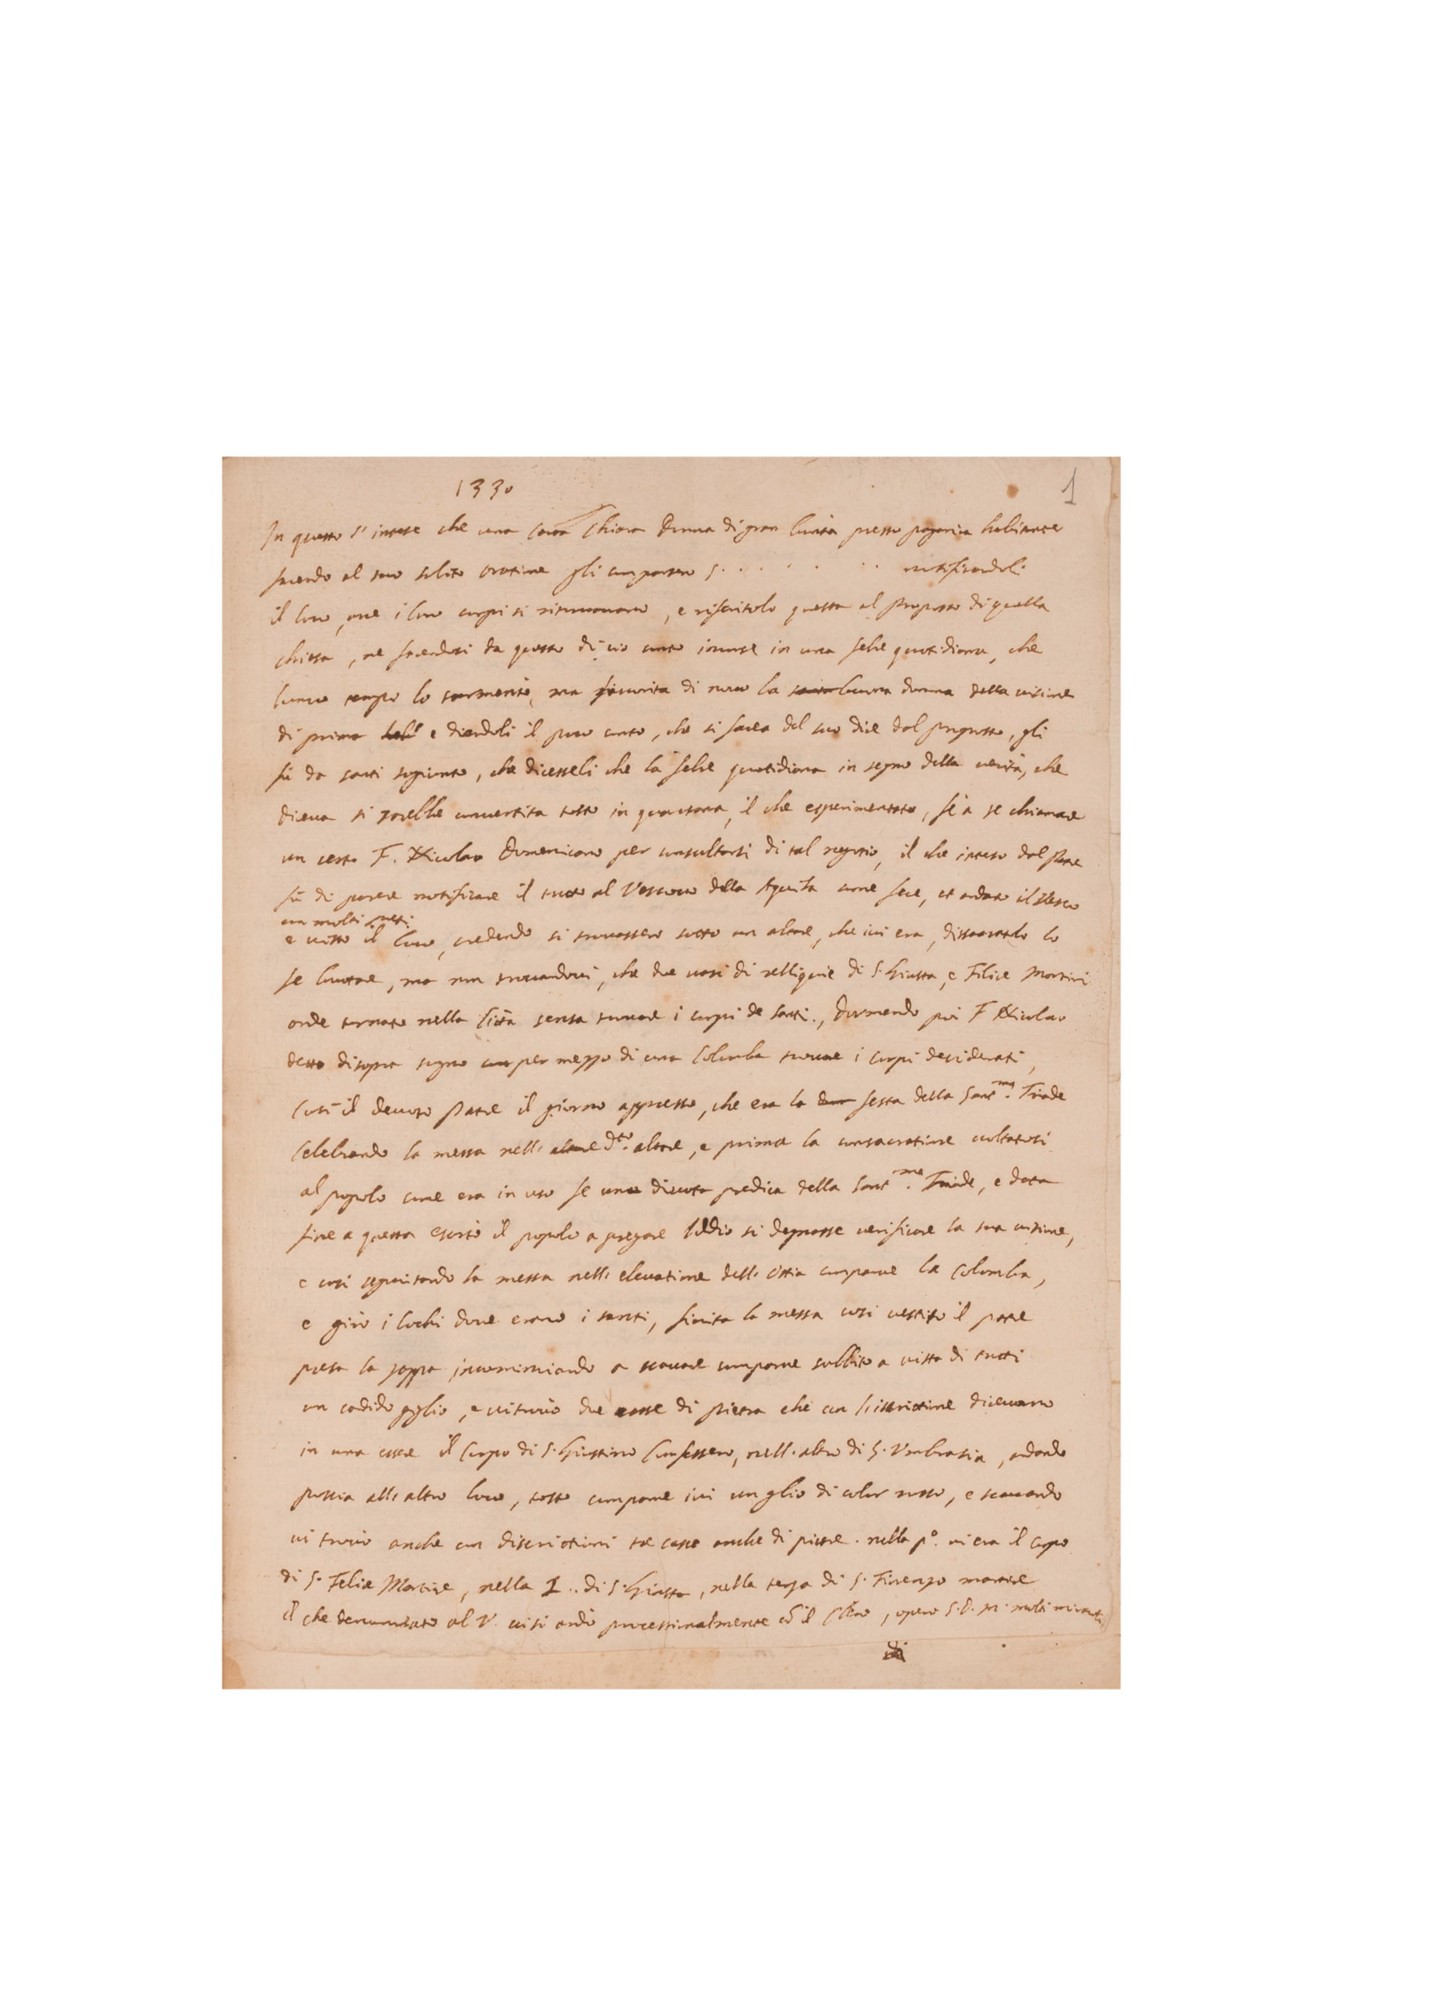 1330
1
In questo s'intese che una Chiara donna di gran bontà presso paganica habitante
facendo al suo solito oratione gli comparsero S. . . . . . . . notificandoli
il loco, oue i loro corpi si ritrouauano, e riferitolo questa al Proposto di quella
chiesa, ne facendosi da questo di ciò conto incorse in una febre quotidiana, che
longo tempo lo tormentò, ma fauorita di nuouo la buona donna della uisione
di prima e dicendoli il poco conto, che si facea del suo dire dal proposto, gli
fù da santi sogiunto, che dicesseli che la febre quotidiana in segno della uerità, che
diceua si sarebbe conuertita tosto in quartana, il che esperimentato, fè a se chiamare
un certo F. Nicolao Domenicano per consultarsi di tal negotio, il che inteso dal Patre
fù di parere notificare il tutto al Vescouo della Aquila come fece, et andato il Vescouo
con molti preti
e uisto il loco, credendo si trouassero sotto un altare, che iui era, dissacratolo lo
fe buttare, ma non trouandoui, che due uasi di relliquie di S. Giusta, e Felice Martiri
onde tornato nella Città senza trouare i corpi de santi., dormendo poi F Nicolao
detto disopra sogno per mezzo di una Colomba trouare i corpi desiderati,
Così il deuoto Patre il giorno appresso, che era la festa della Sant.ma Triade
Celebrando la messa nell' d.to altare, e prima la consacratione uoltatosi
al popolo come era in uso fe una diuota predica della Sant.ma Triade, e data
fine a questa esortò il popolo a pregare Iddio si degnasse uerificare la sua uisione,
e così seguitando la messa nell' eleuatione dell' ostia comparue la Colomba,
e girò i lochi doue erano i santi, finita la messa così uestito il patre
presa la zappa incominciando a scauare comparue subbito a uista di tutti
un cadido giglio, e ui trouò due casse di pietra che con l'iscritione diceuano
in una essere il Corpo di S. Giustino Confessore, nell' altro di S. Vmbrasia, andando
poscia all' altro loco, tosto comparue iui un giglio di color rosso, e scauando
ui trouò anche con discrittioni tre casse anche di pietre. nella p.º ui era il corpo
di S. Felice Martire, nella 2.. di S. Giusta, nella terza di S. Fiorenzo martire
il che denuntiato al V. ui si andò processionalmente cō il Clero, opero S. D. M. molti miracoli